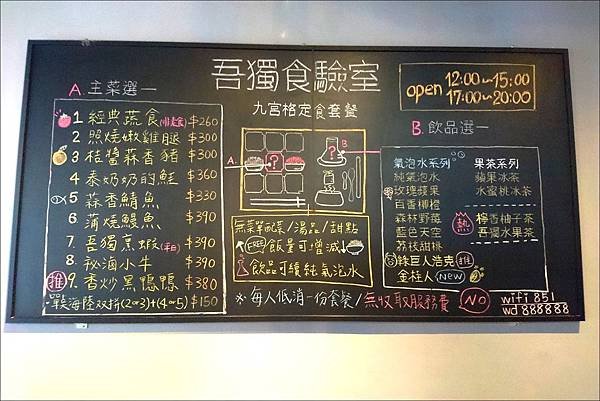 吾獨食驗室
九宮格定食套餐
open 12:00~15:00
17:00~20:00
A. 主菜選一
1 經典蔬食 $260
2. 照燒嫩雞腿 $300
3. 桔醬蒜香豬 $300
4. 泰奶奶的鮭 $360
5. 蒜香鯖魚 $330
6. 蒲燒鰻魚 $390
7. 吾獨烹蝦 $390
8. 秘滷小牛 $390
推 9. 香炒黑鴨鴨 $380
戰海陸双拼(2or3)+(4or5) $150
A.
?
B.
?
無菜單配菜/湯品/甜點
FREE 飯量可增減
飲品可續純氣泡水
※每人低消一份套餐/無收取服務費 NO
B. 飲品選一
氣泡水系列
純氣泡水
玫瑰蘋果
百香柳橙
森林野莓
藍色天空
荔枝甜桃
綠巨人浩克 推
金桂人 New
果茶系列
蘋果冰茶
水蜜桃冰茶
熱
檸香柚子茶
吾獨水果茶
wifi 851
wd 888888